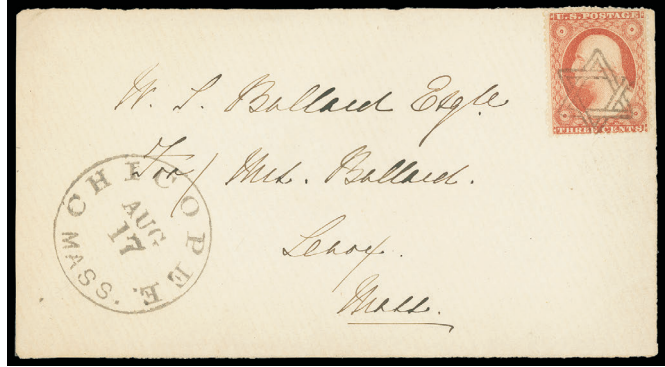 U.S. POSTAGE
THREE CENTS
W. S. Ballard Esqr
For/ Mrs. Ballard.
Lenox.
Mass.
CHICOPEE.
AUG
17
MASS.